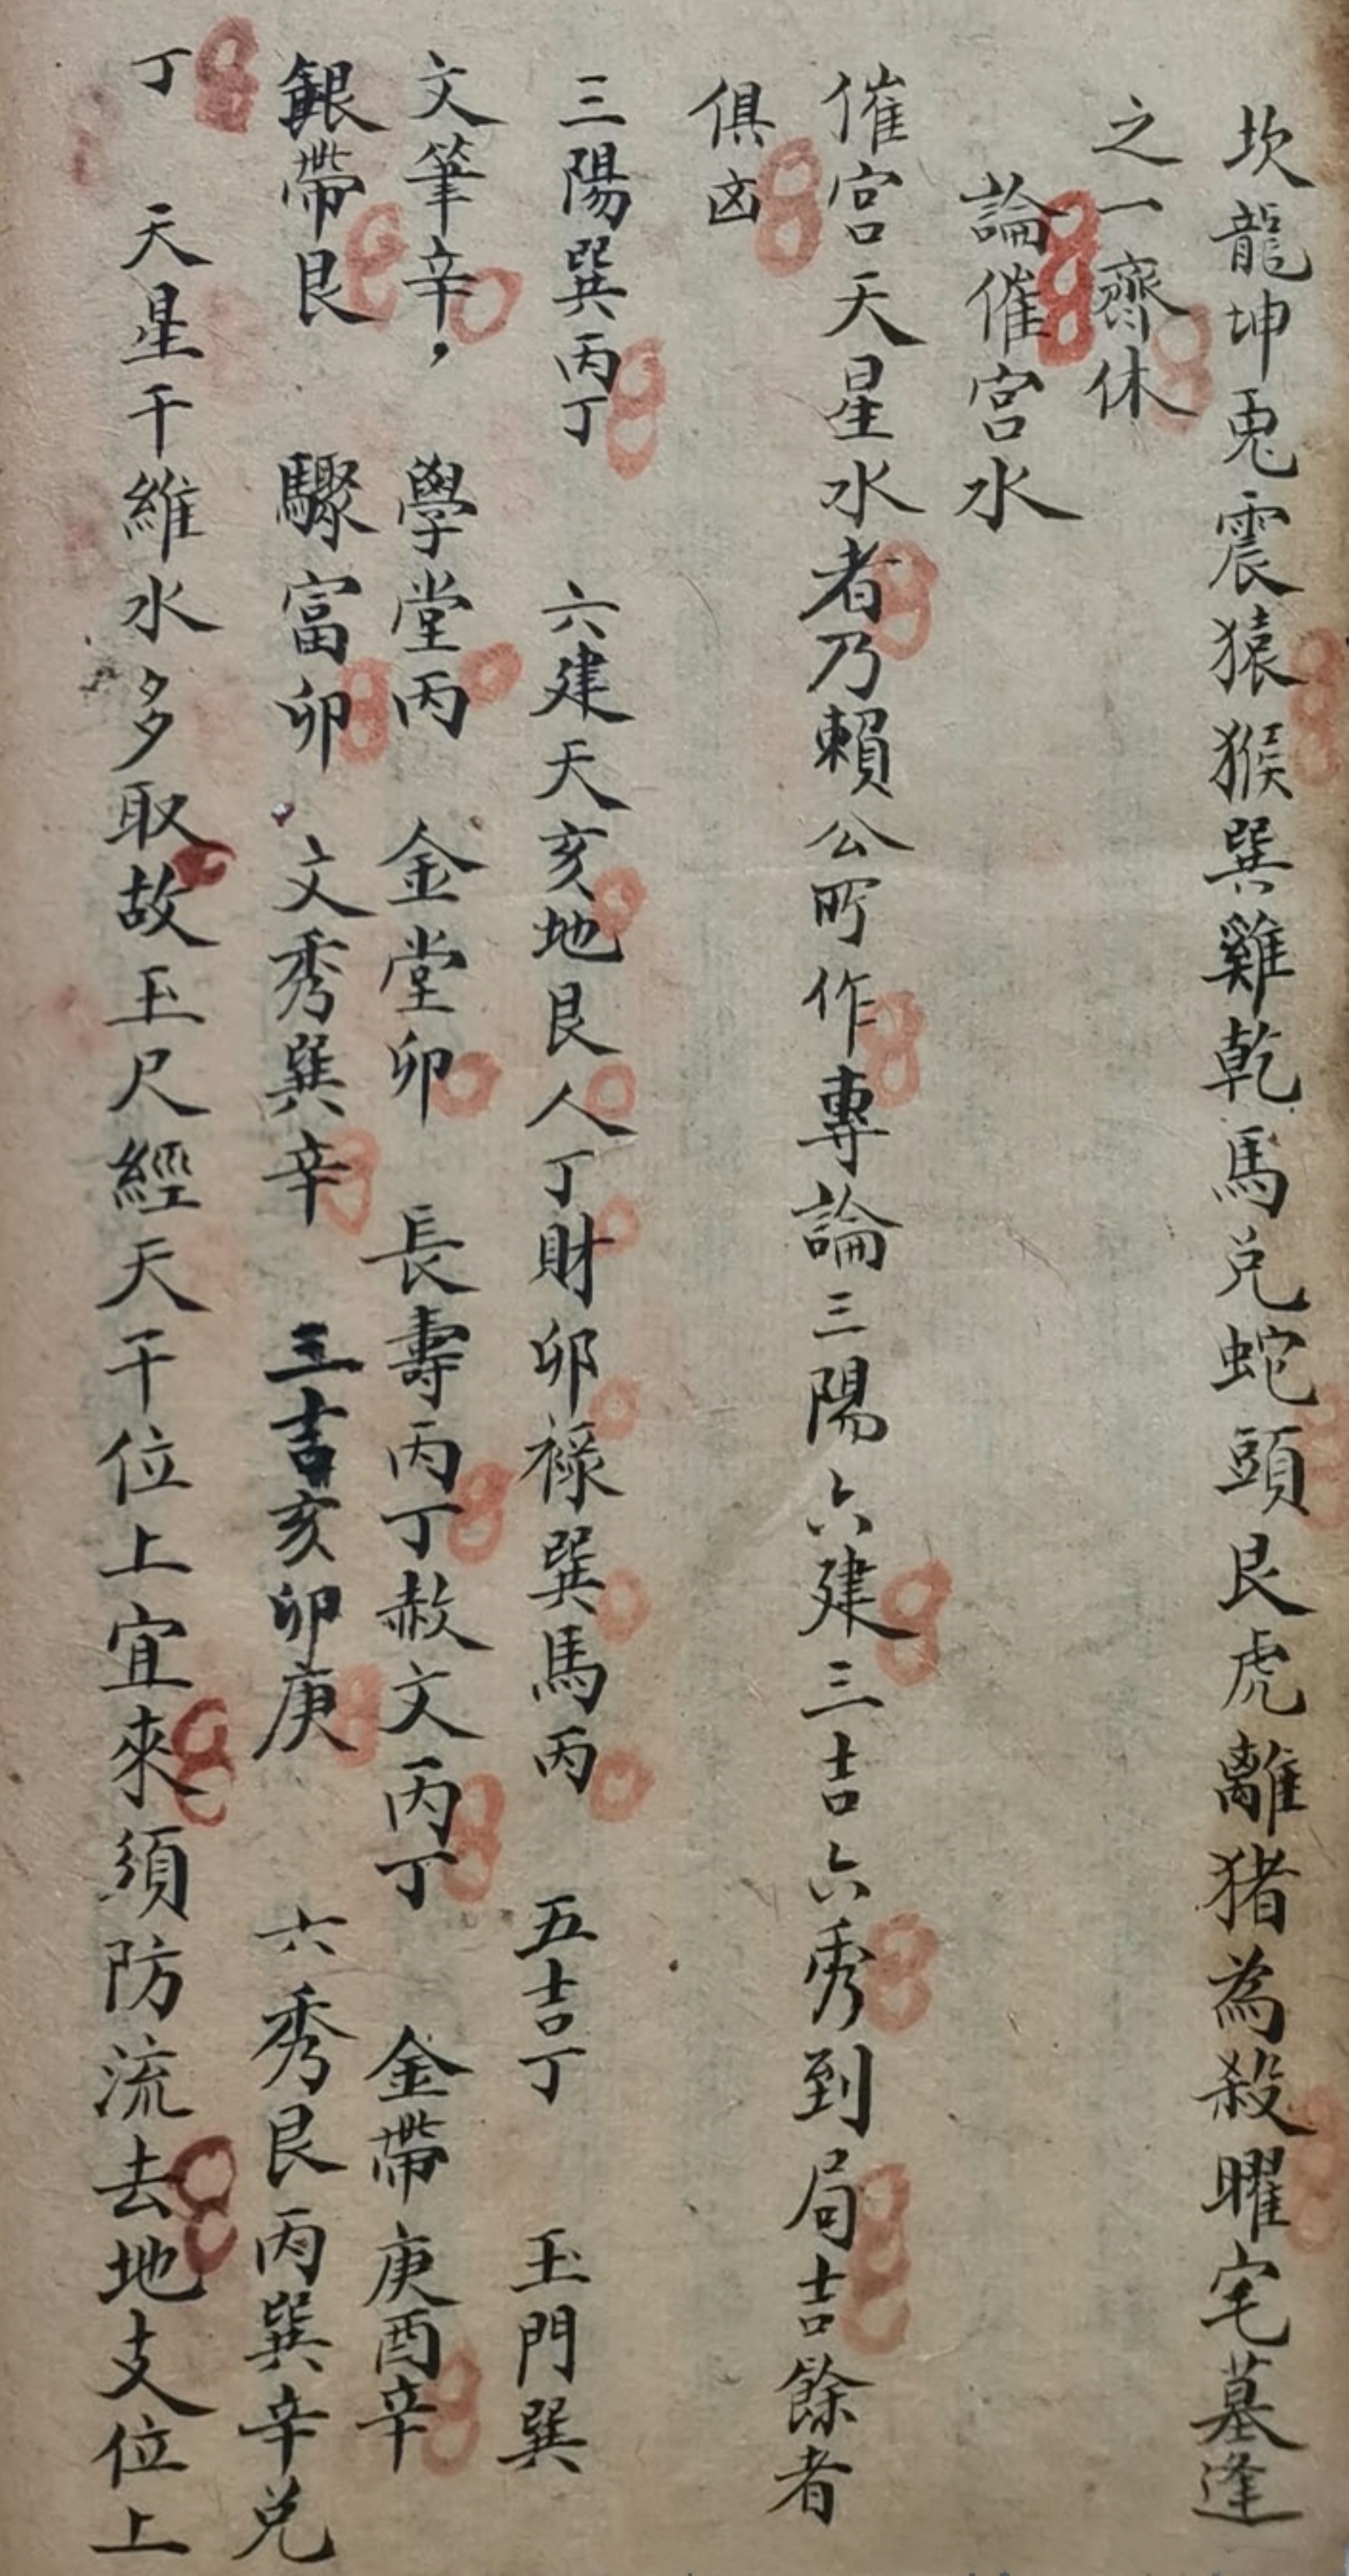 坎龍坤兎震猿猴巽雞乾馬兑蛇頭艮虎離猪為殺曜宅墓逢
之一齊休
論催宮水
催宮天星水者乃賴公所作專論三陽六建三吉六秀到局吉餘者
俱凶
三陽巽丙丁 六建天亥地艮人丁財卯禄巽馬丙 五吉丁 玉門巽
文筆辛, 學堂丙 金堂卯 長壽丙丁赦文丙丁 金帶庚酉辛
銀帶艮 驟富卯 文秀巽辛 三吉亥卯庚 六秀艮丙巽辛兑
丁 天星干維水多取故玉尺經天干位上宜來須防流去地支位上